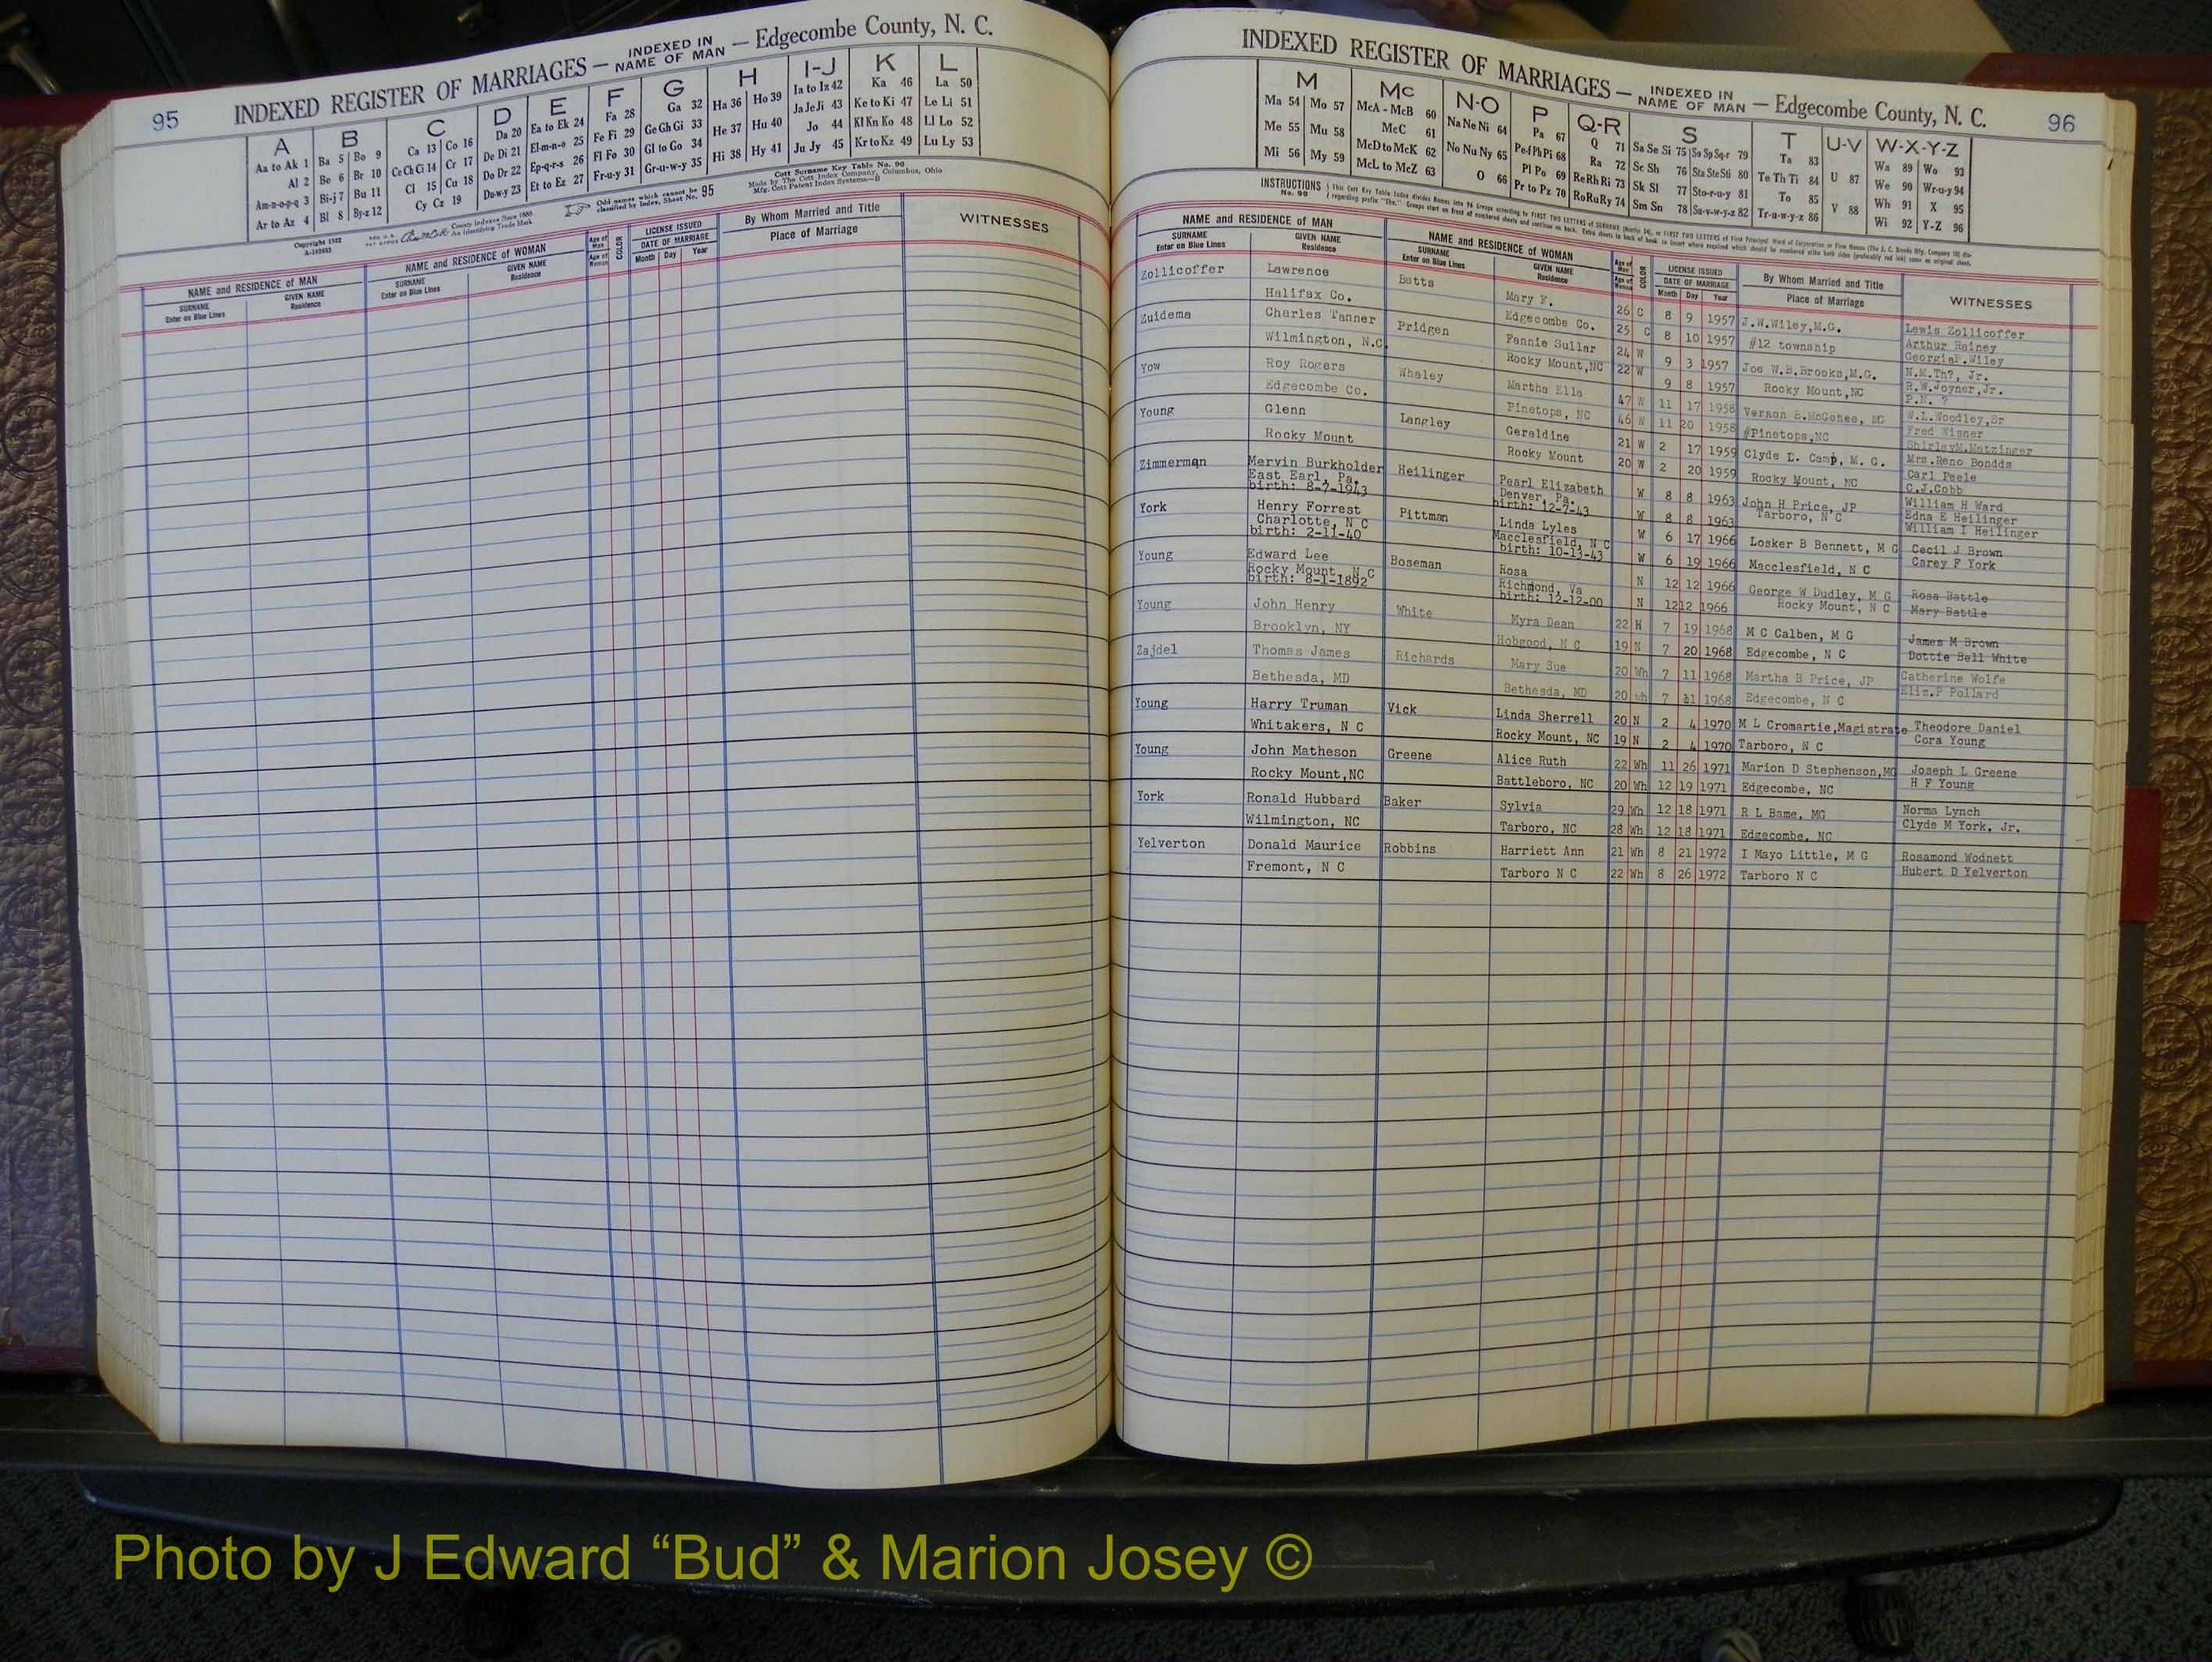 95
INDEXED REGISTER OF MARRIAGES — INDEXED IN NAME OF MAN — Edgecombe County, N. C.
A B C D E F G H I-J K L
Aa to Ak 1 Ba 5 Bo 9 Ca 13 Co 16 Da 20 Ea to Ek 24 Fa 28 Ga 32 Ha 36 Ho 39 Ia to Iz 42 Ka 46 La 50
Al 2 Be 6 Br 10 Ce Ch Ci 14 Cr 17 De Di 21 El-m-n-o 25 Fe Fi 29 Ge Gh Gi 33 He 37 Hu 40 Ja Je Ji 43 Ke to Ki 47 Le Li 51
Am-n-o-p-q 3 Bi-j 7 Bu 11 Cl 15 Cu 18 Do Dr 22 Ep-q-r-s 26 Fl Fo 30 Gl to Go 34 Hi 38 Hy 41 Jo 44 Kl Kn Ko 48 Ll Lo 52
Ar to Az 4 Bl 8 By-z 12 Cy Cz 19 Du-w-y 23 Et to Ez 27 Fr-u-y 31 Gr-u-w-y 35 Ju Jy 45 Kr to Kz 49 Lu Ly 53
Odd names which cannot be classified by Index, Sheet No. 95
Cott Surname Key Table No. 96
Made by The Cott Index Company, Columbus, Ohio
NAME and RESIDENCE of MAN
SURNAME
Enter on Blue Lines
GIVEN NAME
Residence
NAME and RESIDENCE of WOMAN
SURNAME
Enter on Blue Lines
GIVEN NAME
Residence
Age of Man
Age of Woman
COLOR
LICENSE ISSUED
DATE OF MARRIAGE
Month Day Year
By Whom Married and Title
Place of Marriage
WITNESSES
INDEXED REGISTER OF MARRIAGES — INDEXED IN NAME OF MAN — Edgecombe County, N. C.
96
M Mc N-O P Q-R S T U-V W-X-Y-Z
Ma 54 Mo 57 McA - McB 60 Na Ne Ni 64 Pa 67 Q 71 Sa Se Si 75 So Sp Sq-r 79 Ta 83 U 87 Wa 89 Wo 93
Me 55 Mu 58 McC 61 No Nu Ny 65 Pe-f Ph Pi 68 Ra 72 Sc Sh 76 Sta Ste Sti 80 Te Th Ti 84 V 88 We 90 Wr-u-y 94
Mi 56 My 59 McD to McK 62 O 66 Pl Po 69 Re Rh Ri 73 Sk Sl 77 Sto-r-u-y 81 To 85 Wh 91 X 95
McL to McZ 63 Pr to Pz 70 Ro Ru Ry 74 Sm Sn 78 Su-v-w-y-z 82 Tr-u-w-y-z 86 Wi 92 Y-Z 96
NAME and RESIDENCE of MAN
SURNAME
Enter on Blue Lines
GIVEN NAME
Residence
NAME and RESIDENCE of WOMAN
SURNAME
Enter on Blue Lines
GIVEN NAME
Residence
Age of Man
Age of Woman
COLOR
LICENSE ISSUED
DATE OF MARRIAGE
Month Day Year
By Whom Married and Title
Place of Marriage
WITNESSES
Zollicoffer Lawrence Batts Mary F. 26 C 8 9 1957 J.W.Wiley,M.G. Lewis Zollicoffer
Halifax Co. Edgecombe Co. 25 C 8 10 1957 #12 township Arthur Rainey
Zuidema Charles Tanner Pridgen Fannie Sullar 24 W 9 3 1957 Joe W.B.Brooks,M.G. N.M.Th?, Jr.
Wilmington, N.C. Rocky Mount,NC 22 W 9 8 1957 Rocky Mount,NC R.W.Joyner,Jr.
P.N. ?
Yow Roy Rogers Whaley Martha Ella 47 W 11 17 1958 Vernon B.McGehee, MG W.L.Woodley,Sr
Edgecombe Co. Pinetops, NC 46 W 11 20 1958 #Pinetops,NC Fred Wisner
Young Glenn Langley Geraldine 21 W 2 17 1959 Clyde L. Camp, M. G. Mrs.Reno Bondds
Rocky Mount Rocky Mount 20 W 2 20 1959 Rocky Mount, NC Carl Peele
C.J.Cobb
Zimmerman Mervin Burkholder Heilinger Pearl Elizabeth W 8 8 1963 John H Price, JP William H Ward
East Earl, Pa. Denver, Pa. W 8 8 1963 Tarboro, N C Edna E Heilinger
birth: 8-7-1943 birth: 12-7-43 William I Heilinger
York Henry Forrest Pittman Linda Lyles W 6 17 1966 Losker B Bennett, M G Cecil J Brown
Charlotte, N C Macclesfield, N C W 6 19 1966 Macclesfield, N C Carey F York
birth: 2-11-40 birth: 10-13-43
Young Edward Lee Boseman Rosa N 12 12 1966 George W Dudley, M G Rosa Battle
Rocky Mount, N C Richmond, Va N 12 12 1966 Rocky Mount, N C Mary Battle
birth: 8-1-1892 birth: 12-12-00
Young John Henry White Myra Dean 22 N 7 19 1968 M C Calben, M G James M Brown
Brooklyn, NY Hobgood, N C 19 N 7 20 1968 Edgecombe, N C Dottie Bell White
Zajdel Thomas James Richards Mary Sue 20 Wh 7 11 1968 Martha B Price, JP Catherine Wolfe
Bethesda, MD Bethesda, MD 20 Wh 7 1968 Edgecombe, N C Eliz.P Pollard
Young Harry Truman Vick Linda Sherrell 20 N 2 4 1970 M L Cromartie,Magistrate Theodore Daniel
Whitakers, N C Rocky Mount, NC 19 N 2 4 1970 Tarboro, N C Cora Young
Young John Matheson Greene Alice Ruth 22 Wh 11 26 1971 Marion D Stephenson,MG Joseph L Greene
Rocky Mount,NC Battleboro, NC 20 Wh 12 19 1971 Edgecombe, NC H F Young
York Ronald Hubbard Baker Sylvia 29 Wh 12 18 1971 R L Bame, MG Norma Lynch
Wilmington, NC Tarboro, NC 28 Wh 12 18 1971 Edgecombe, NC Clyde M York, Jr.
Yelverton Donald Maurice Robbins Harriett Ann 21 Wh 8 21 1972 I Mayo Little, M G Rosamond Wodnett
Fremont, N C Tarboro N C 22 Wh 8 26 1972 Tarboro N C Hubert D Yelverton
Photo by J Edward “Bud” & Marion Josey ©